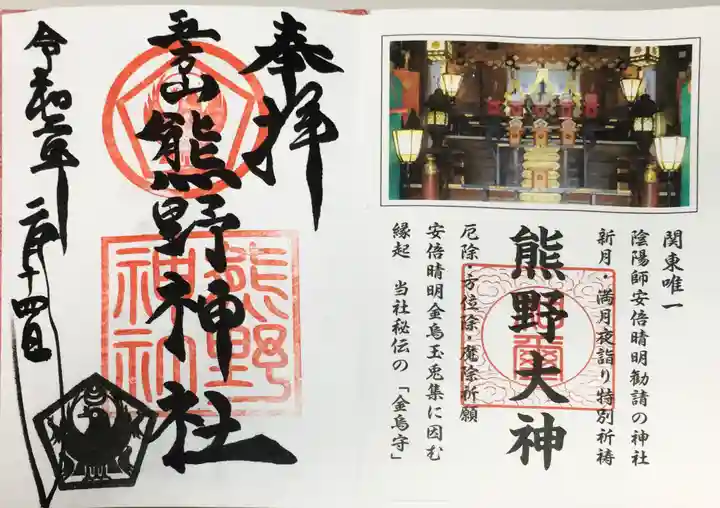 関東唯一
陰陽師安倍晴明勧請の神社
新月・満月夜詣り特別祈祷
熊野大神
厄除・方位除・魔除祈願
安倍晴明金烏玉兎集に因む
縁起 当社秘伝の「金烏守」
奉拝
熊野神社
熊野
神社
令和二年
二月十四日